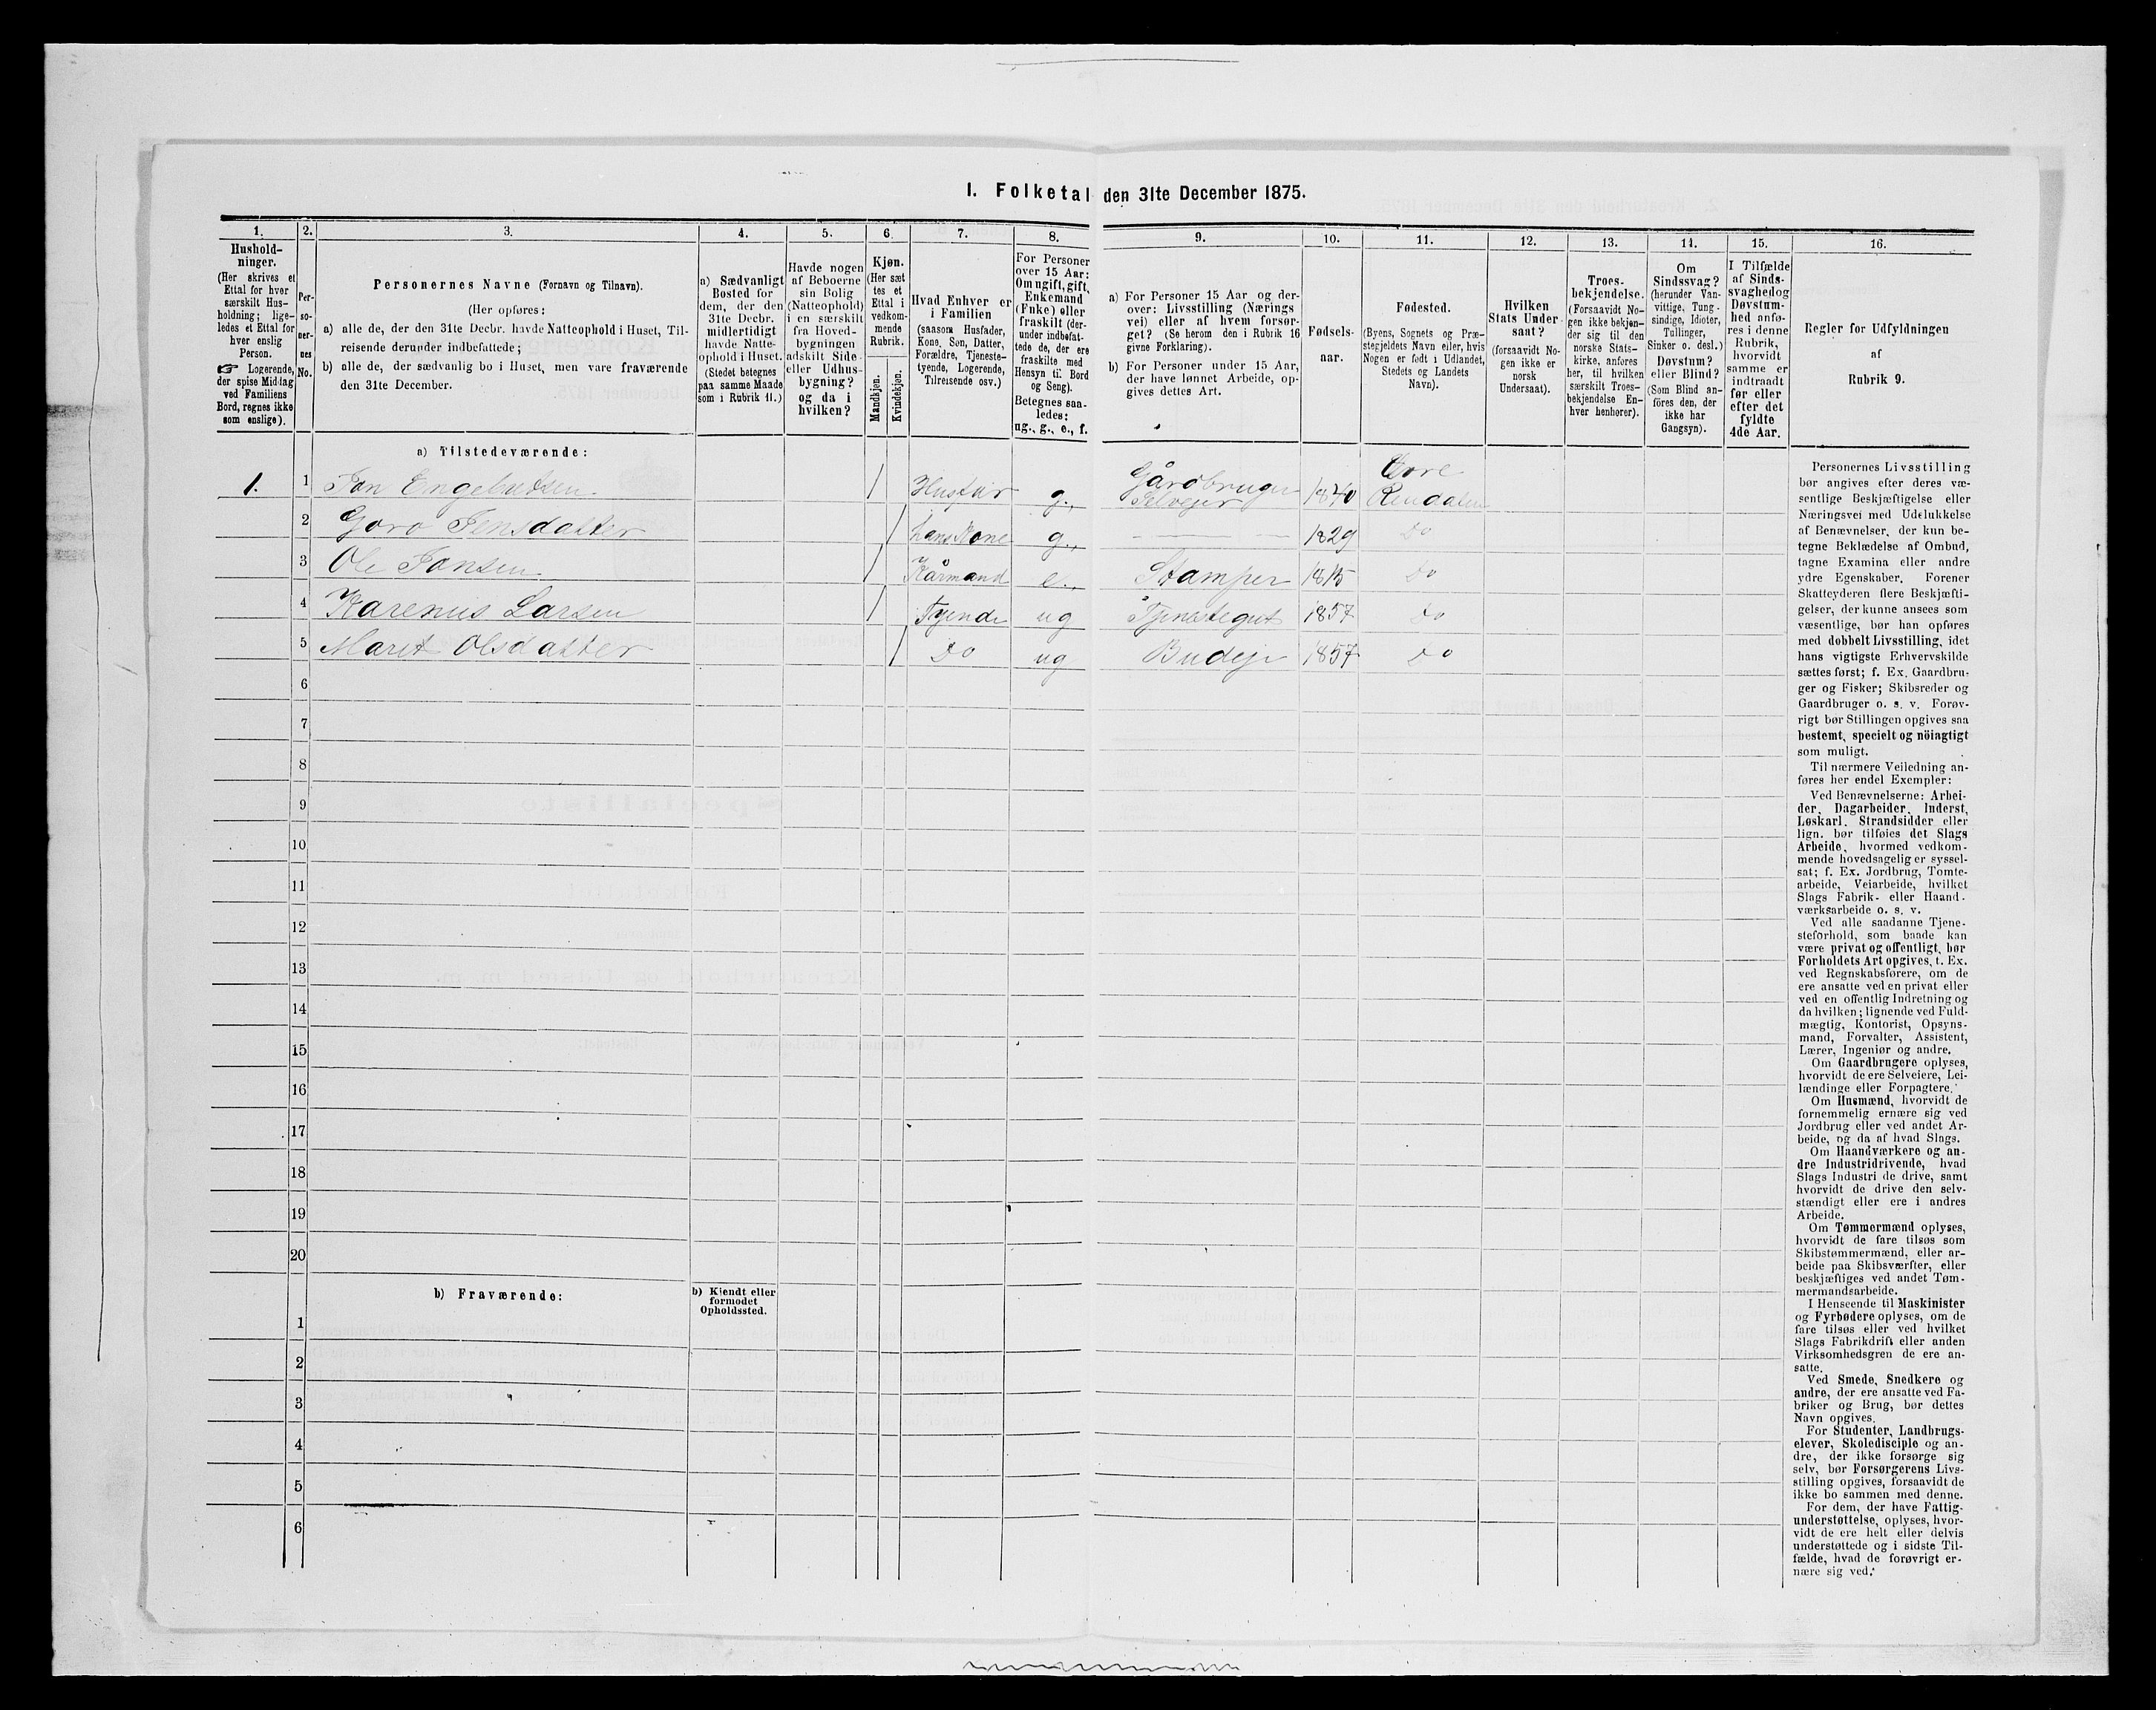 I. Folketal den 31te December 1875.
1. 2. 3. 4. 5. 6. 7. 8. 9. 10. 11. 12. 13. 14. 15. 16.
Hushold-
ninger.
(Her skrives et
Ettal for hver
særskilt Hus-
holdning; lige-
ledes et Ettal for
hver enslig
Person.
☞ Logerende,
der spise Middag
ved Familiens
Bord, regnes ikke
som enslige).
Per-
so-
ner-
nes
No.
Personernes Navne (Fornavn og Tilnavn).
(Her opføres:
a) alle de, der den 31te Decbr. havde Natteophold i Huset, Til-
reisende derunder indbefattede;
b) alle de, der sædvanlig bo i Huset, men vare fraværende
den 31te December.
a) Sædvanligt
Bosted for
dem, der den
31te Decbr.
midlertidigt
havde Natte-
ophold i Huset.
(Stedet betegnes
paa samme Maade
som i Rubrik 11.)
Havde nogen
af Beboerne
sin Bolig
(Natteophold)
i en særskilt
fra Hoved-
bygningen
adskilt Side-
eller Udhus-
bygning?
og da i
hvilken?
Kjøn.
(Her sæt
tes et
Ettal i
vedkom-
mende
Rubrik.
Mandkjøn.
Kvindekjøn.
Hvad Enhver er
i Familien
(saasom Husfader,
Kone, Søn, Datter,
Forældre, Tjeneste-
tyende, Logerende,
Tilreisende osv.)
For Personer
over 15 Aar:
Om ugift, gift,
Enkemand
(Enke) eller
fraskilt (der-
under indbefat-
tede de, der ere
fraskilte med
Hensyn til Bord
og Seng).
Betegnes saa-
ledes:
ug., g., e., f.
a) For Personer 15 Aar og der-
over: Livsstilling (Nærings
vei) eller af hvem forsør-
get? (Se herom den i Rubrik 16
givne Forklaring).
b) For Personer under 15 Aar,
der have lønnet Arbeide, op-
gives dettes Art.
Fødsels-
aar.
Fødested.
(Byens, Sognets og Præ-
stegjeldets Navn eller, hvis
Nogen er født i Udlandet,
Stedets og Landets
Navn).
Hvilken
Stats Under-
saat?
(forsaavidt No-
gen ikke er
norsk
Undersaat).
Troes-
bekjendelse.
(Forsaavidt No-
gen ikke bekjen-
der sig til den
norske Stats-
kirke, anføres
her, til hvilken
særskilt Troes-
bekjendelse En-
hver henhører).
Om
Sindssvag?
(herunder Van-
vittige, Tung-
sindige, Idioter,
Tullinger,
Sinker o. desl.)
Døvstum?
eller Blind?
(Som Blind an-
föres den, der
ikke har
Gangsyn).
I Tilfælde
af Sinds-
svaghed og
Døvstum-
hed anfø-
res i denne
Rubrik,
hvorvidt
samme er
indtraadt
før eller
efter det
fyldte
4de Aar.
Regler for Udfyldningen
af
Rubrik 9.
a) Tilstedeværende:
1. 1 Jon Engebretsen Husfar g., Gårdbruger Selvejer 1840 Øvre Rendalen
2 Goro Jensdatter hans Kone g., 1829 Do
3 Ole Jonsen Kårmand e., Stamper 1815 Do
4 Karenus Larsen Tyende ug Tjenestegut 1857 Do
5 Marit Olsdatter Do ug Budeje 1857 Do
6
7
8
9
10
11
12
13
14
15
16
17
18
19
20
b) Fraværende:
b) Kiendt eller
formodet
Opholdssted.
1
2
3
4
5
6
Personernes Livsstilling
bør angives efter deres væ-
sentlige Beskjæftigelse eller
Næringsvei med Udelukkelse
af Benævnelser, der kun be-
tegne Beklædelse af Ombud,
tagne Examina eller andre
ydre Egenskaber. Forener
Skatteyderen flere Beskjæfti-
gelser, der kunne ansees som
væsentlige, bør han opføres
med dobbelt Livsstilling, idet
hans vigtigste Erhvervskilde
sættes først; f. Ex. Gaardbru-
ger og Fisker; Skibsreder og
Gaardbruger o. s. v. Forøv-
rigt bør Stillingen opgives saa
bestemt, specielt og nöiagtigt
som muligt.
Til nærmere Veiledning an-
føres her endel Exempler:
Ved Benævnelserne: Arbei-
der, Dagarbeider, Inderst,
Løskarl, Strandsidder eller
lign. bør tilføies det Slags
Arbeide, hvormed vedkom-
mende hovedsagelig er syssel-
sat; f. Ex. Jordbrug, Tomte-
arbeide, Veiarbeide, hvilket
Slags Fabrik- eller Haand-
værksarbeide o. s. v.
Ved alle saadanne Tjene-
steforhold, som baade kan
være privat og offentligt, bør
Forholdets Art opgives, t. Ex.
ved Regnskabsførere, om de
ere ansatte ved en privat eller
ved en offentlig Indretning og
da hvilken; lignende ved Fuld-
mægtig, Kontorist, Opsyns-
mand, Forvalter, Assistent,
Lærer, Ingeniør og andre.
Om Gaardbrugere oplyses,
hvorvidt de ere Selveiere, Lei-
lændinge eller Forpagtere.
Om Husmænd, hvorvidt de
fornemmelig ernære sig ved
Jordbrug eller ved andet Ar-
beide, og da af hvad Slags.
Om Haandværkere og an-
dre Industridrivende, hvad
Slags Industri de drive, samt
hvorvidt de drive den selv-
stændigt eller ere i andres
Arbeide.
Om Tømmermænd oplyses,
hvorvidt de fare tilsøs som
Skibstømmermænd, eller ar-
beide paa Skibsværfter, eller
beskjæftiges ved andet Tøm-
mermandsarbeide.
I Henseende til Maskinister
og Fyrbødere oplyses, om de
fare tilsøs eller ved hvilket
Slags Fabrikdrift eller anden
Virksomhedsgren de ere an-
satte.
Ved Smede, Snedkere og
andre, der ere ansatte ved Fa-
briker og Brug, bør dettes
Navn opgives.
For Studenter, Landbrugs-
elever, Skoledisciple og an-
dre, der ikke forsørge sig
selv, bør Forsørgerens Livs-
stilling opgives, forsaavidt de
ikke bo sammen med denne.
For dem, der have Fattig-
understøttelse, oplyses, hvor-
vidt de ere helt eller delvis
understøttede og i sidste Til-
fælde, hvad de forøvrigt er-
nære sig ved.